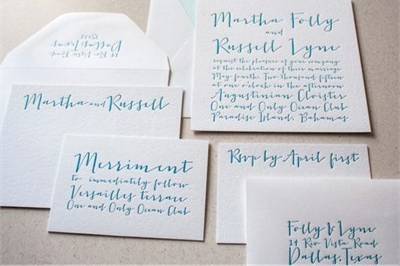 Martha Folly
and
Russell Lyne
request the pleasure of your company
at the celebration of their marriage
May fourth Two thousand fifteen
at one o'clock in the afternoon
Augustinian Cloister
One and Only Ocean Club
Paradise Island, Bahamas
Martha and Russell
Merriment
to immediately follow
Versailles Terrace
One and Only Ocean Club
Rsvp by April first
Folly & Lyne
24 Rio Vista Road
Dallas, Texas